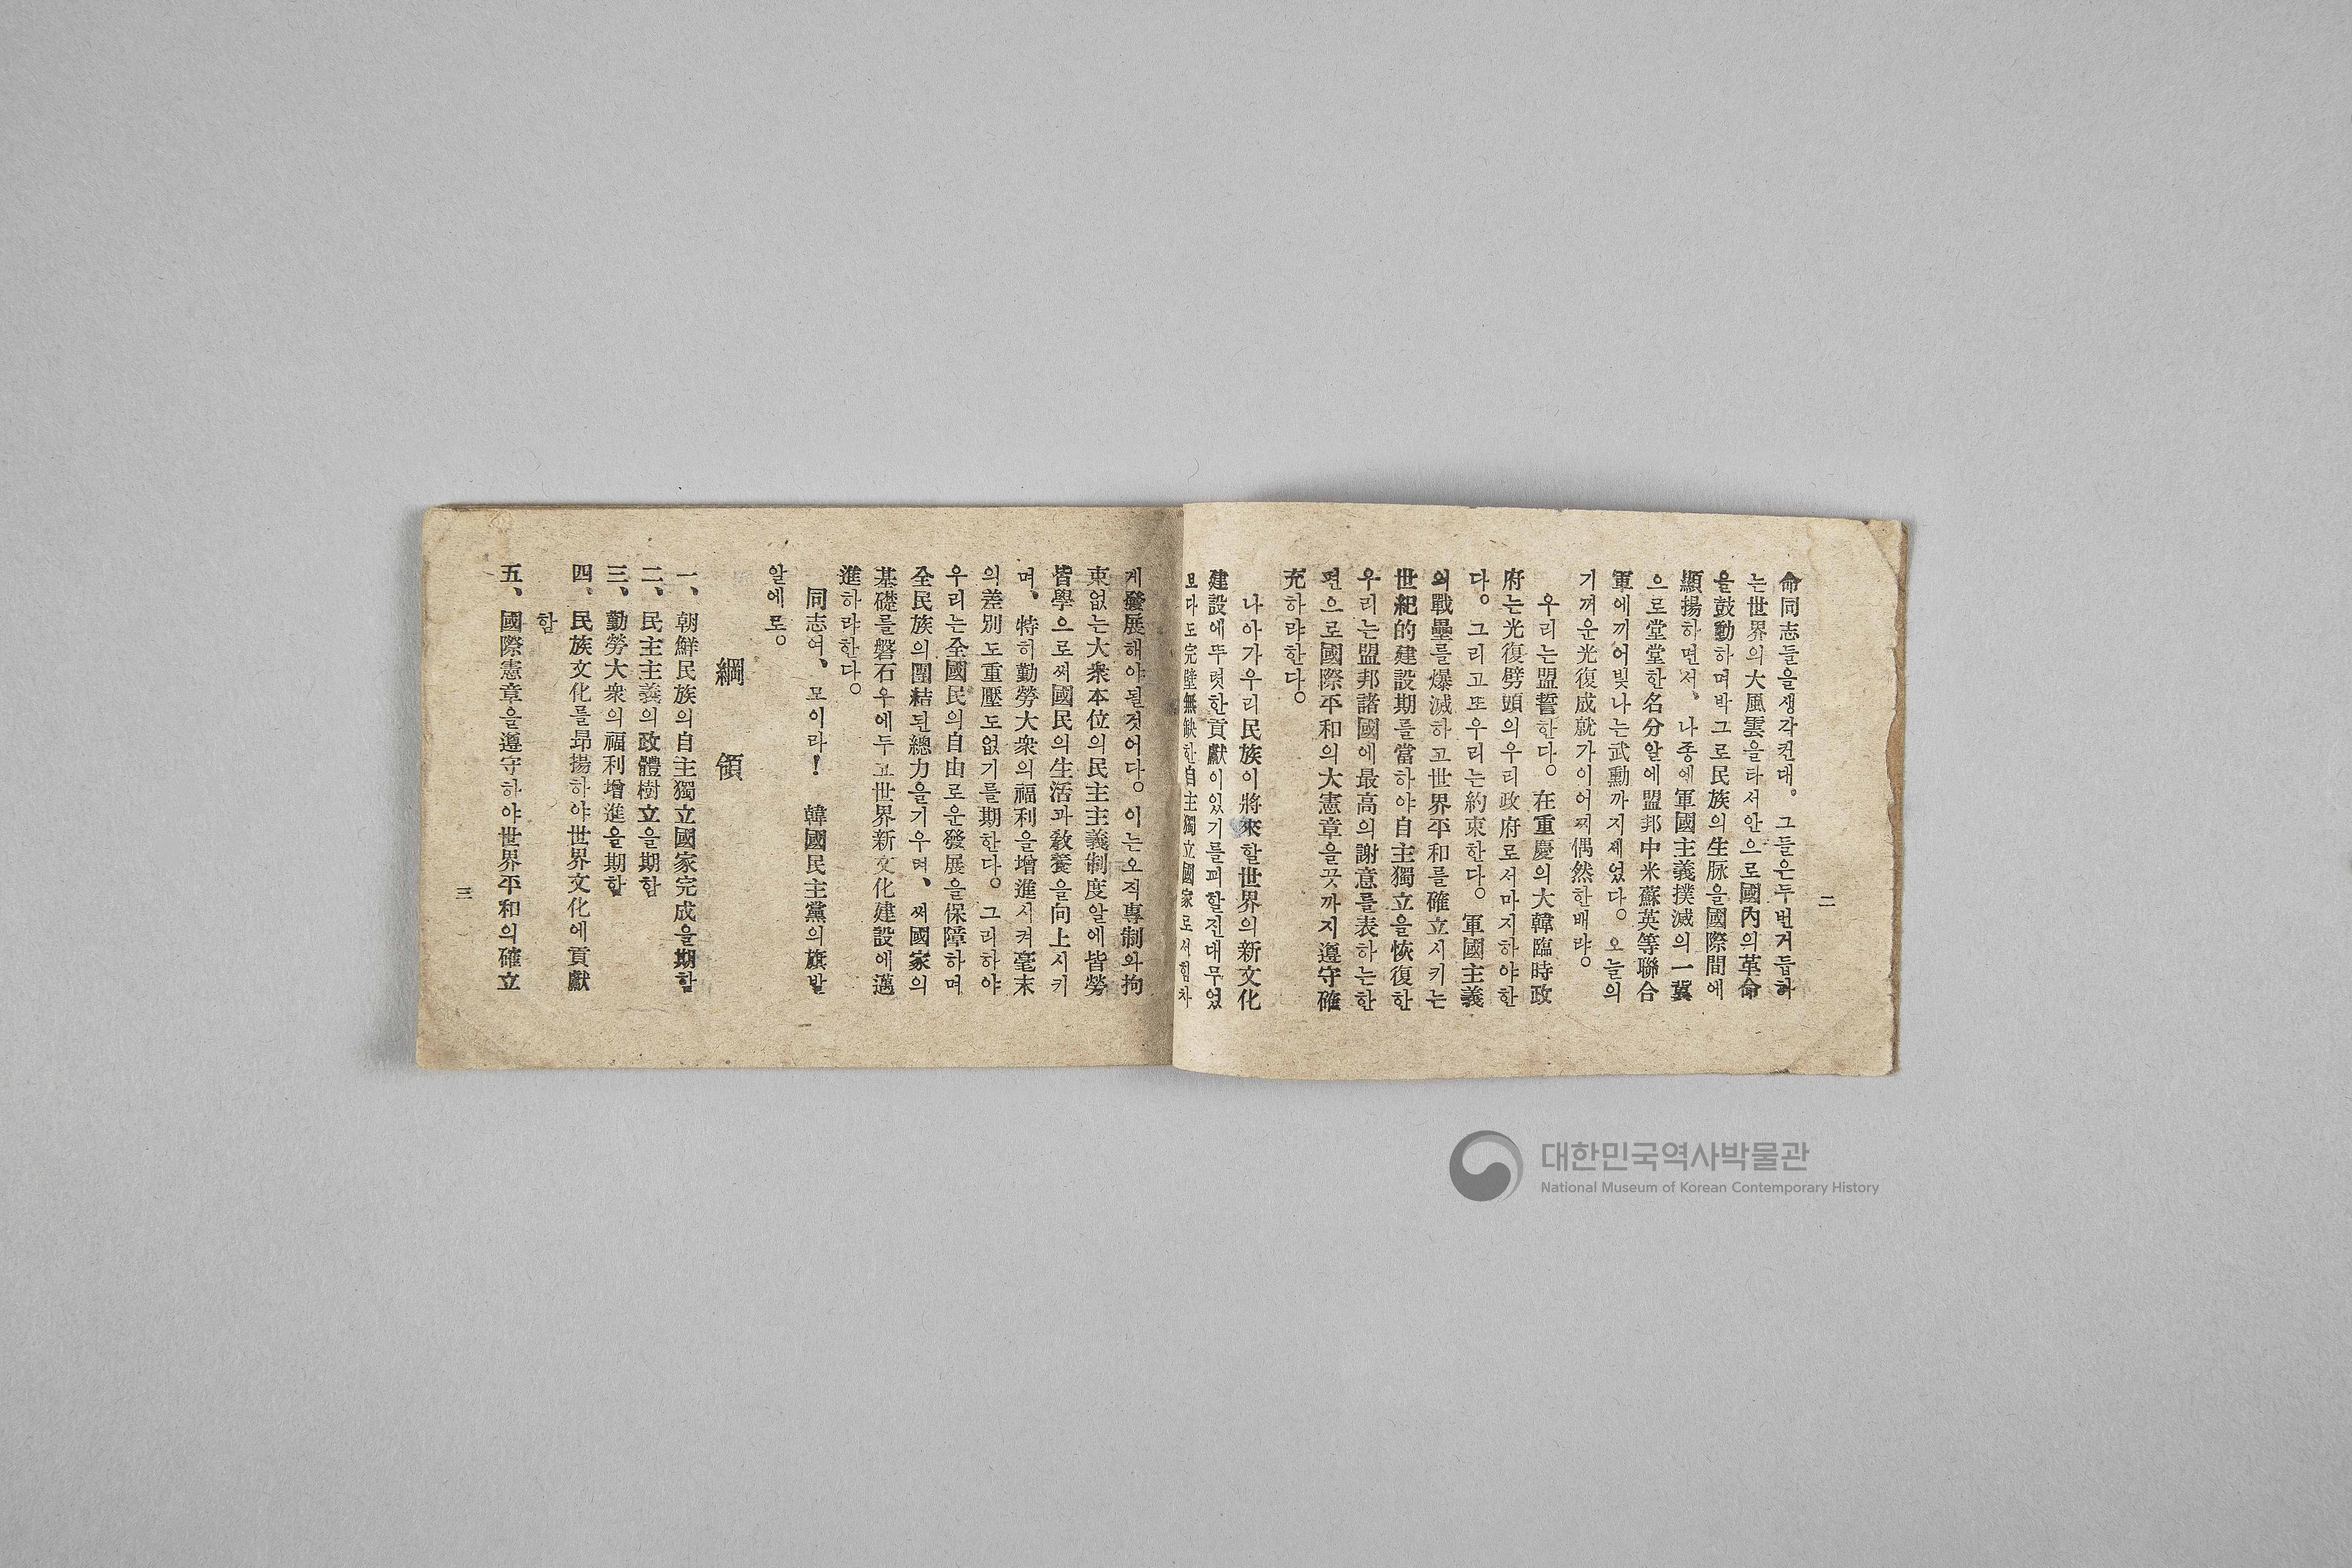 二
命同志들을생각컨대。그들은두번거듭하
는世界의大風雲을타서안으로國內의革命
을鼓動하며박그로民族의生脉을國際間에
顯揚하면서、나종에軍國主義撲滅의一翼
으로堂堂한名分알에盟邦中米蘇英等聯合
軍에끼어빛나는武勳까지세었다。오늘의
기꺼운光復成就가이어찌偶然한배랴。
우리는盟誓한다。在重慶의大韓臨時政
府는光復劈頭의우리政府로서마지하야한
다。그리고또우리는約束한다。軍國主義
의戰壘를爆滅하고世界平和를確立시키는
世紀的建設期를當하야自主獨立을恢復한
우리는盟邦諸國에最高의謝意를表하는한
편으로國際平和의大憲章을끗까지遵守確
充하랴한다。
나아가우리民族이將來할世界의新文化
建設에뚜렷한貢獻이있기를피할진대무엇
보다도完璧無缺한自主獨立國家로서힘차
게發展해야될것어다。이는오직專制와拘
束없는大衆本位의民主主義制度알에皆勞
皆學으로써國民의生活과敎養을向上시키
며、特히勤勞大衆의福利을增進시켜毫末
의差別도重壓도없기를期한다。그리하야
우리는全國民의自由로운發展을保障하며
全民族의團結된總力을기우려、써國家의
基礎를磐石우에두고世界新文化建設에邁
進하랴한다。
同志여、모이라!　韓國民主黨의旗발
알에로。
綱　領
一、朝鮮民族의自主獨立國家完成을期함
二、民主主義의政體樹立을期함
三、勤勞大衆의福利增進을期함
四、民族文化를昻揚하야世界文化에貢獻
함
五、國際憲章을遵守하야世界平和의確立
三
대한민국역사박물관
National Museum of Korean Contemporary History